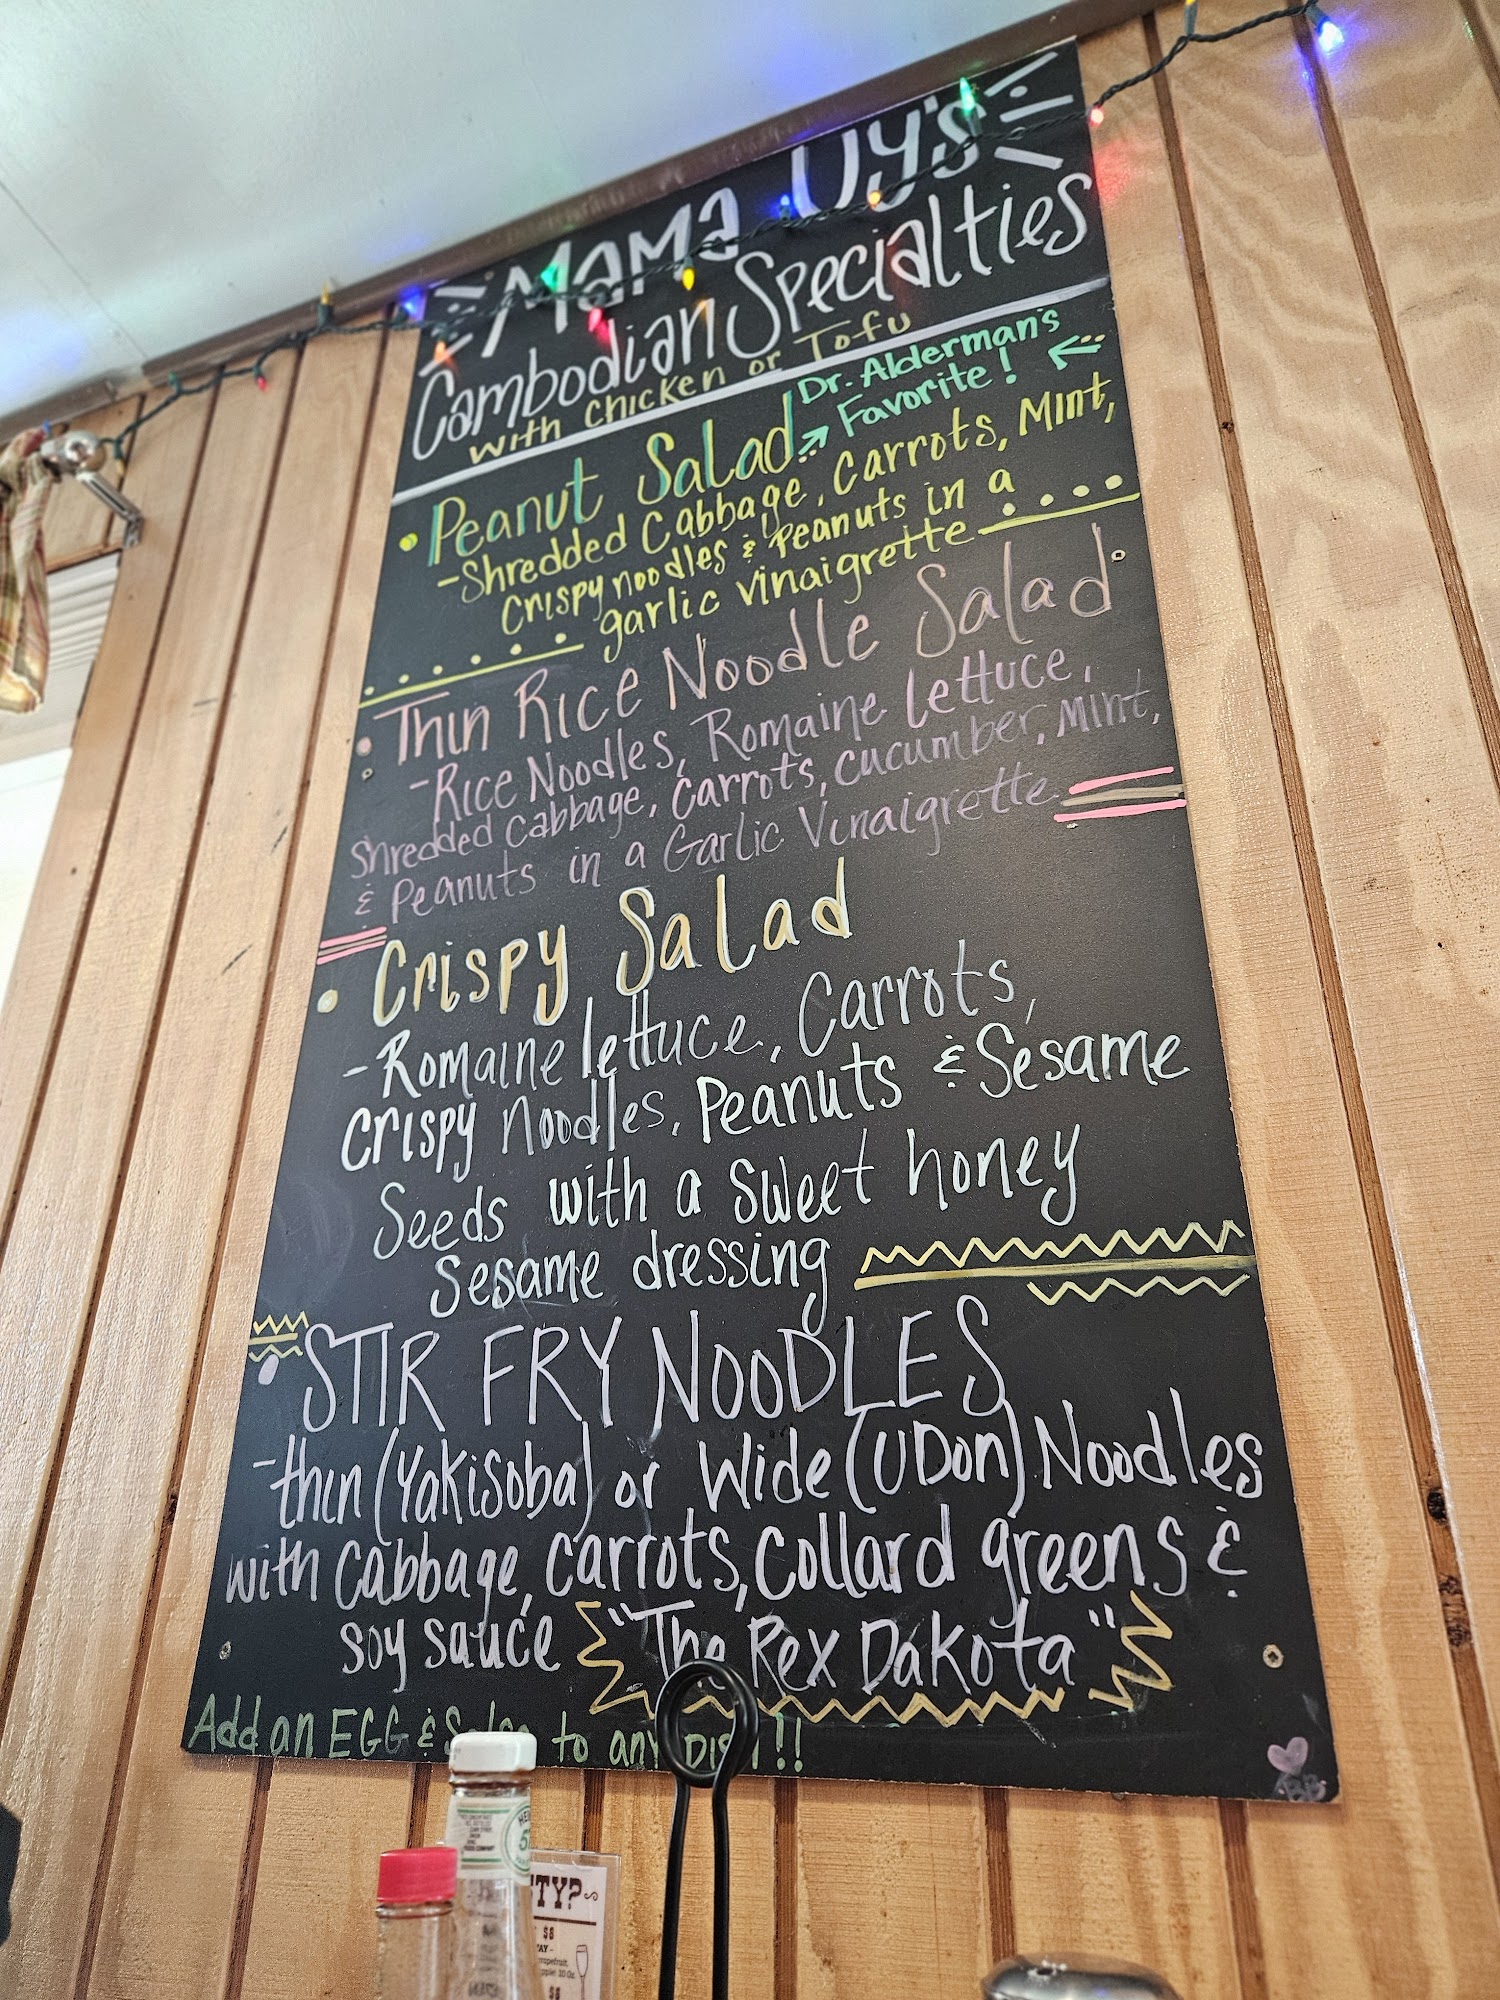 Mama Uy's
Cambodian Specialties
with chicken or Tofu
• Peanut Salad
Dr. Alderman's
Favorite!
- Shredded Cabbage, Carrots, Mint,
Crispy noodles & Peanuts in a
garlic vinaigrette
• Thin Rice Noodle Salad
- Rice Noodles, Romaine lettuce,
Shredded Cabbage, Carrots, cucumber, Mint,
& Peanuts in a Garlic Vinaigrette
• Crispy Salad
- Romaine lettuce, Carrots,
Crispy noodles, Peanuts & Sesame
Seeds with a sweet honey
Sesame dressing
• STIR FRY NOODLES
- thin (Yakisoba) or Wide (UDon) Noodles
with Cabbage, Carrots, Collard greens &
soy sauce "The Rex Dakota"
Add an EGG & Salsa to any Dish!!
BB
TY?
$8
grapefruit,
20 Oz.
$8